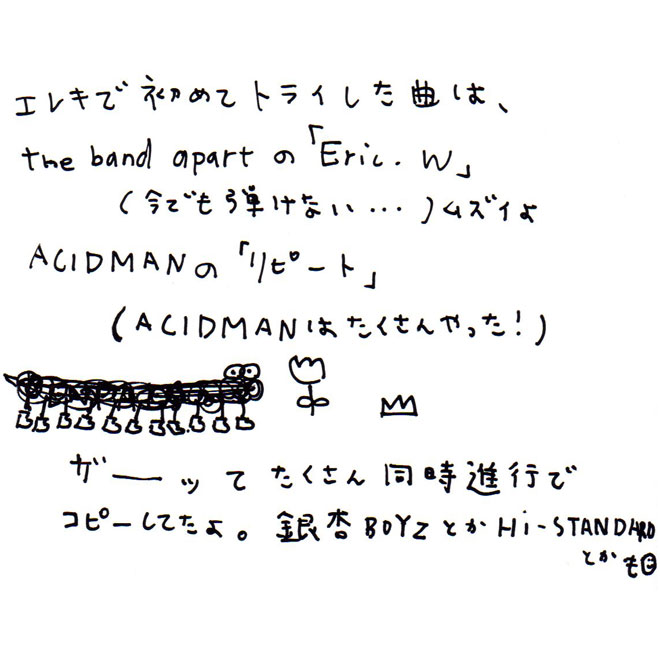 エレキで初めてトライした曲は、
the band apartの「Eric. W」
(今でも弾けない…)ムズイよ
ACIDMANの「リピート」
(ACIDMANはたくさんやった!)
ガーーッてたくさん同時進行で
コピーしてたよ。銀杏BOYZとかHi-STANDARD
とかも